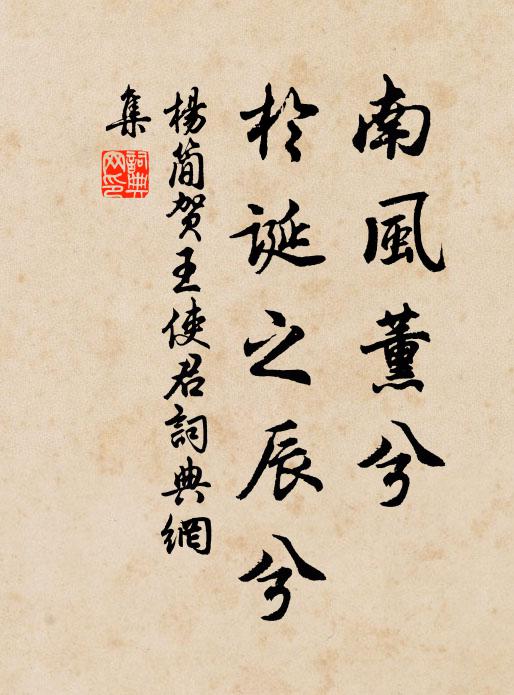 南風薰兮
於誕之辰兮
楊簡賀王使君詞典網
集
詞典
网印